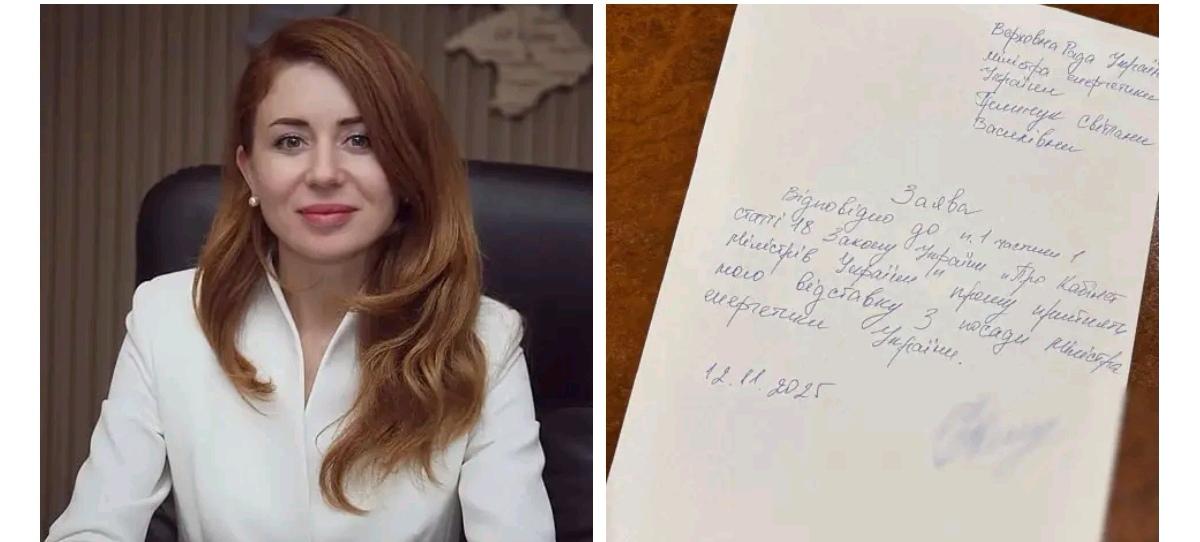 Верховна Рада Україн
міністра енергетики
України
Гринчук Світлани
Василівни
Заява
Відповідно до п.1 частини 1
статті 18 Закону України „Про Кабінет
Міністрів України" прошу прийняти
мою відставку з посади Міністра
енергетики України.
12.11.2025